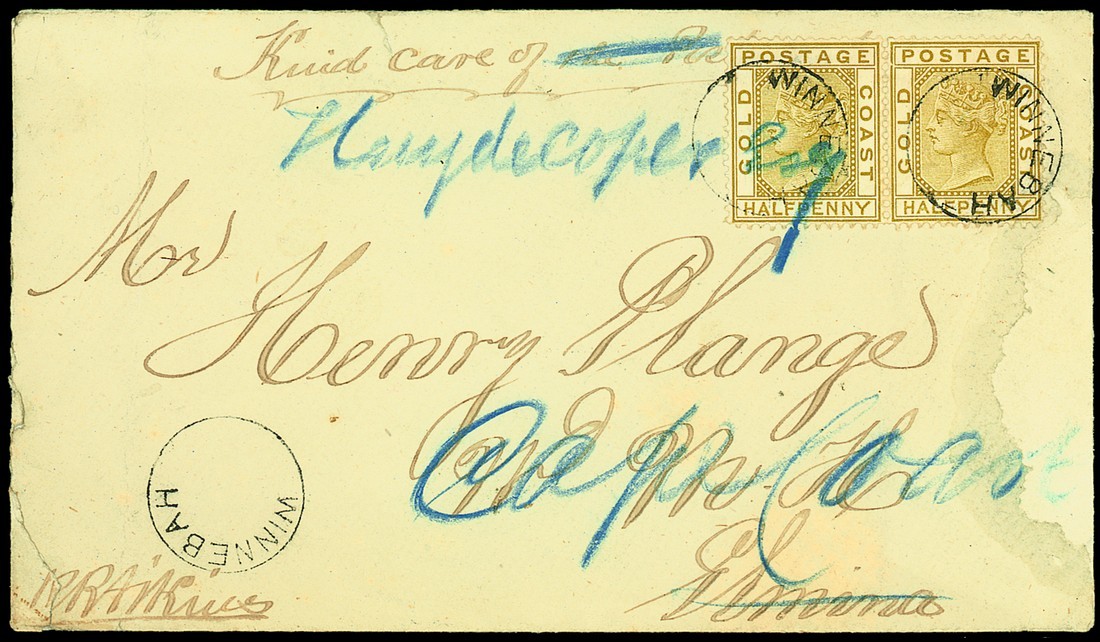 Kind care of the
Huydecoper Esqr
POSTAGE
GOLD
COAST
HALFPENNY
POSTAGE
GOLD
COAST
HALFPENNY
WINNEBAH
WINNEBAH
Mr
Henry Plange
Cape Coast
Elmina
WINNEBAH